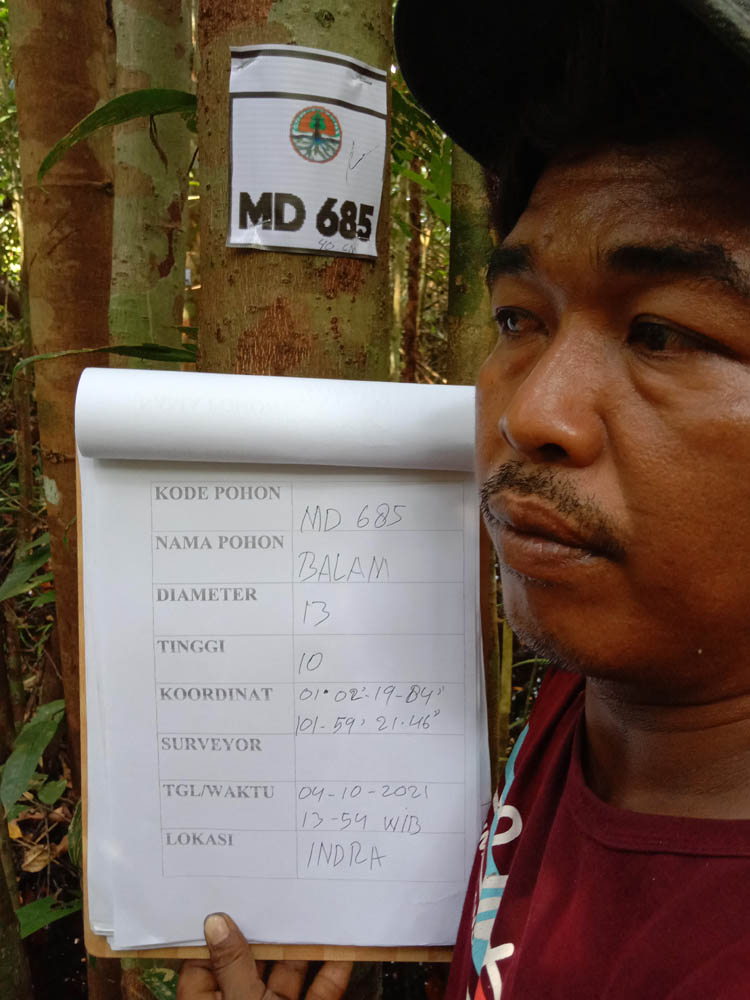 MD 685
40 CM
KODE POHON MD 685
NAMA POHON BALAM
DIAMETER 13
TINGGI 10
KOORDINAT 01° 02'-19-84"
101-59' 21.46"
SURVEYOR
TGL/WAKTU 04-10-2021
13-54 WIB
LOKASI INDRA